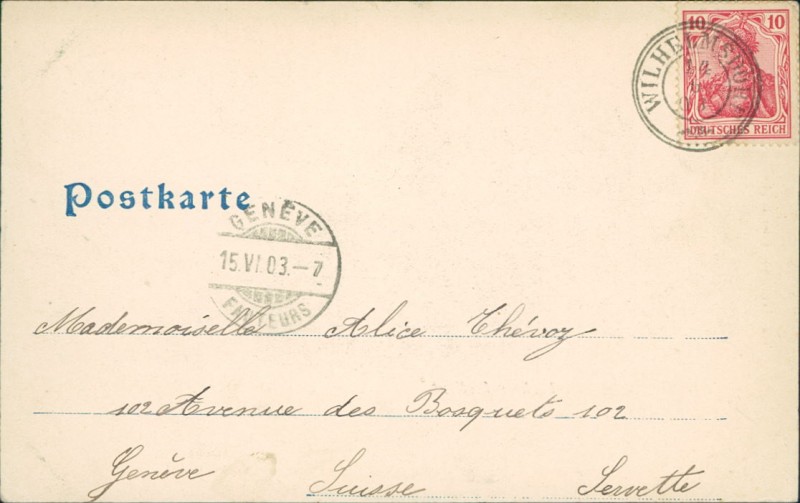 10 10
DEUTSCHES REICH
Postkarte
GENÈVE
15.VI.03.–7
FACTEURS
Mademoiselle Alice Thévoz
102 Avenue des Bosquets 102
Genève Suisse Servette